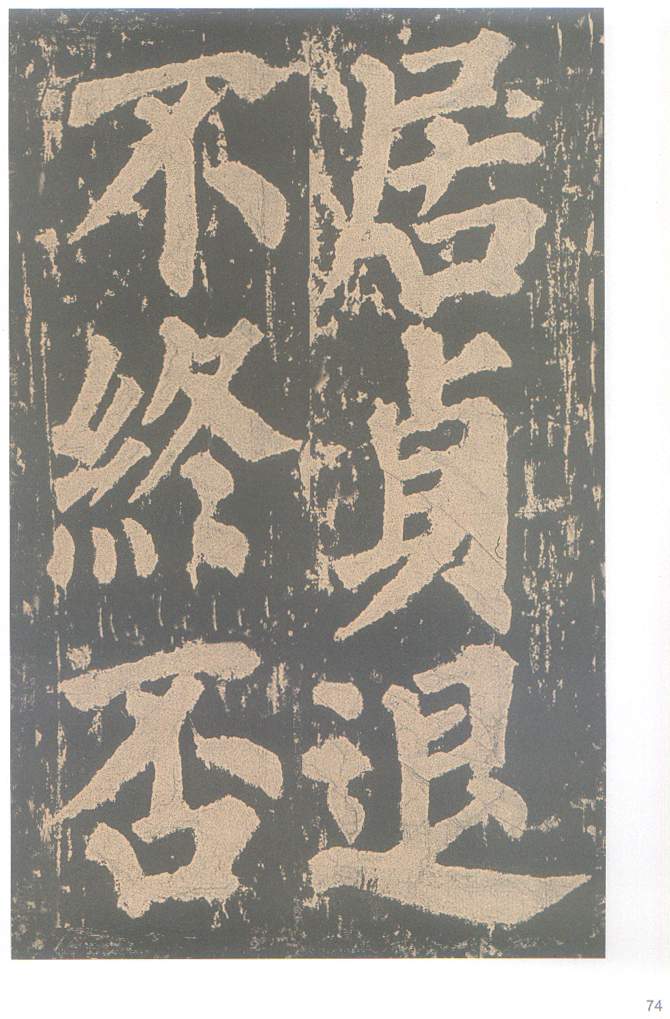 居貞退
不終否
74